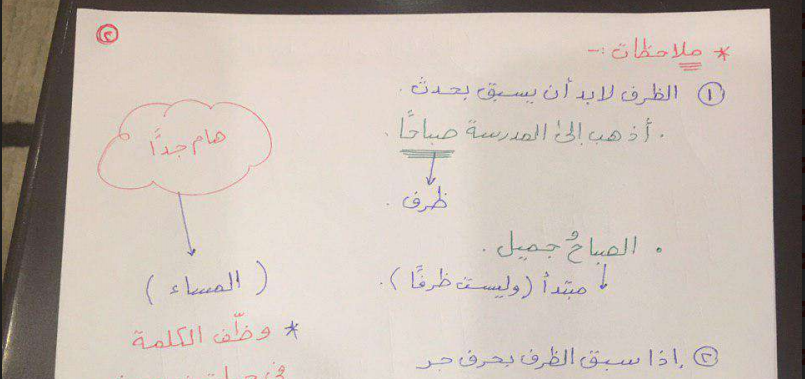 ٢
* ملاحظات :-
١ الظرف لابد أن يسبق بحدث .
. أذهب إلى المدرسة صباحًا .
ظرف .
. الصباحُ جميل .
مبتدأ (وليست ظرفًا) .
٢ إذا سبق الظرف بحرف جر
هام جدًّا
( المساء )
* وظّف الكلمة
في